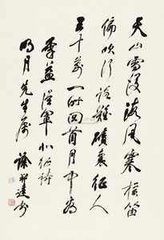 天山雪後海風寒橫笛
偏吹行路難磧裏征人
三十萬一時回首月中看
李益從軍北征詩
明月先生屬 徐邦達書